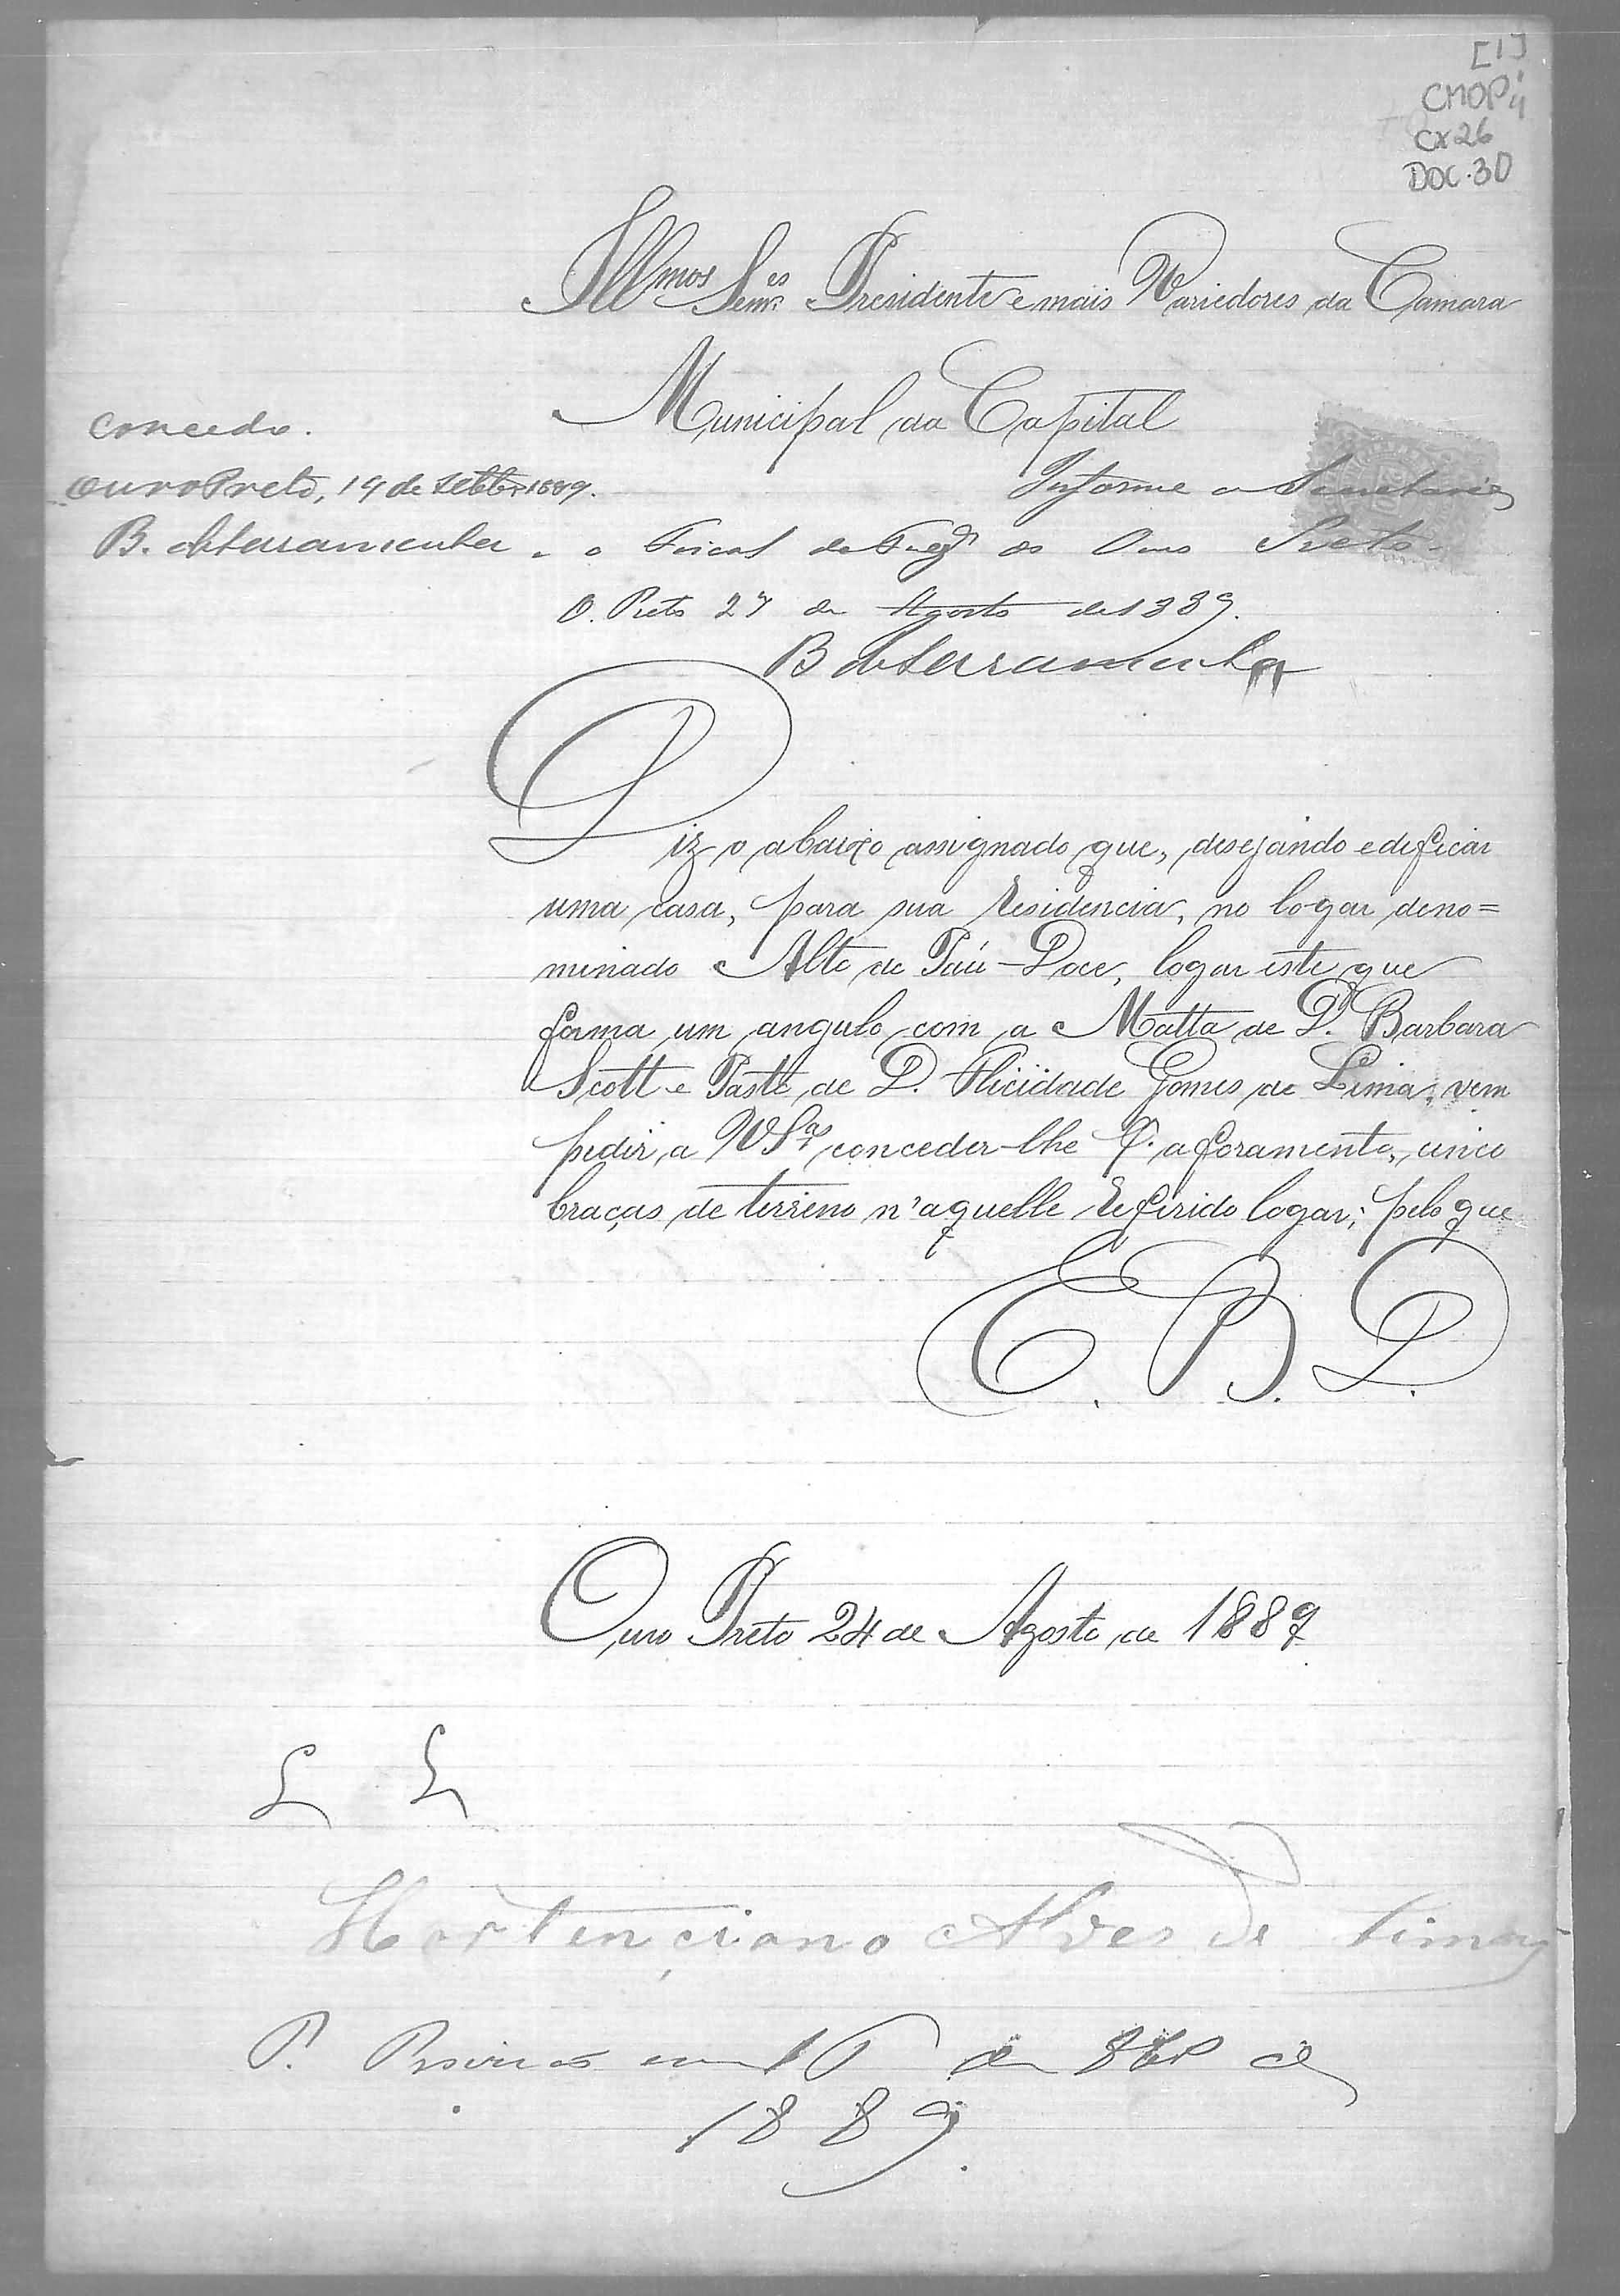 [1]
CMOP
CX 26
DOC. 30
Illmos Senres Presidente e mais Variedores da Camara
Municipal da Capital
Concedo.
Ouro Preto, 19 de Setbro 1889.
Informe o Secretario
B. de Saramenha
o Fiscal da Freg do Ouro Preto.
O. Preto 27 de Agosto de 1889.
B de Saramenha
Diz o abaixo assignado que, desejando edificar
uma casa, para sua residencia, no logar deno=
minado Alto do Páu-Doce, logar este que
forma um angulo com a Matta de D. Barbara
Scott e Pasto de D. Flicidade Gomes de Lima, vem
pedir a VVSas conceder-lhe P. aforamento, cinco
braças de terreno n'aquelle referido logar; pelo que
E. B. D.
Ouro Preto 24 de Agosto de 1889
Hortenciano Alves de Lima
P.
de
1889.